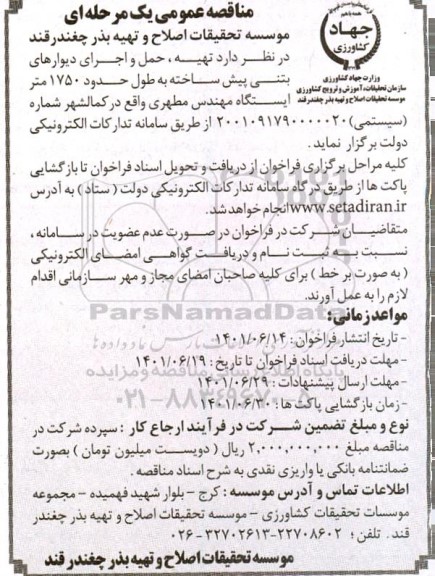 مناقصه عمومی یک مرحله ای
جهاد
کشاورزی
وزارت جهاد کشاورزی
سازمان تحقیقات، آموزش و ترویج کشاورزی
موسسه تحقیقات اصلاح و تهیه بذر چغندر قند
موسسه تحقیقات اصلاح و تهیه بذر چغندرقند
در نظر دارد تهیه ، حمل و اجرای دیوارهای
بتنی پیش ساخته به طول حدود ۱۷۵۰ متر
ایستگاه مهندس مطهری واقع در کمالشهر شماره
(سیستمی) ۲۰۰۱۰۹۱۷۹۰۰۰۰۰۲۰ از طریق سامانه تدارکات الکترونیکی
دولت برگزار نماید.
کلیه مراحل برگزاری فراخوان از دریافت و تحویل اسناد فراخوان تا بازگشایی
پاکت ها از طریق درگاه سامانه تدارکات الکترونیکی دولت ( ستاد ) به آدرس
www.setadiran.ir انجام خواهد شد.
متقاضیان شرکت در فراخوان در صورت عدم عضویت در سامانه ،
نسبت به ثبت نام و دریافت گواهی امضای الکترونیکی
( به صورت بر خط ) برای کلیه صاحبان امضای مجاز و مهر سازمانی اقدام
لازم را به عمل آورند.
مواعد زمانی:
- تاریخ انتشار فراخوان : ۱۴۰۱/۰۶/۱۴
- مهلت دریافت اسناد فراخوان تا تاریخ : ۱۴۰۱/۰۶/۱۹
- مهلت ارسال پیشنهادات : ۱۴۰۱/۰۶/۲۹
- زمان بازگشایی پاکت ها : ۱۴۰۱/۰۶/۳۰
نوع و مبلغ تضمین شرکت در فرآیند ارجاع کار : سپرده شرکت در
مناقصه مبلغ ۲,۰۰۰,۰۰۰,۰۰۰ ریال ( دویست میلیون تومان ) بصورت
ضمانتنامه بانکی یا واریزی نقدی به شرح اسناد مناقصه .
اطلاعات تماس و آدرس موسسه : کرج - بلوار شهید فهمیده - مجموعه
موسسات تحقیقات کشاورزی - موسسه تحقیقات اصلاح و تهیه بذر چغندر
قند . تلفن : ۲۲۷۰۸۶۰۲-۳۲۷۰۲۶۱۳ -۰۲۶
موسسه تحقیقات اصلاح و تهیه بذر چغندر قند
ParsNamadData
۰۲۱-۸۸۳۴۹۶۷۰-۵